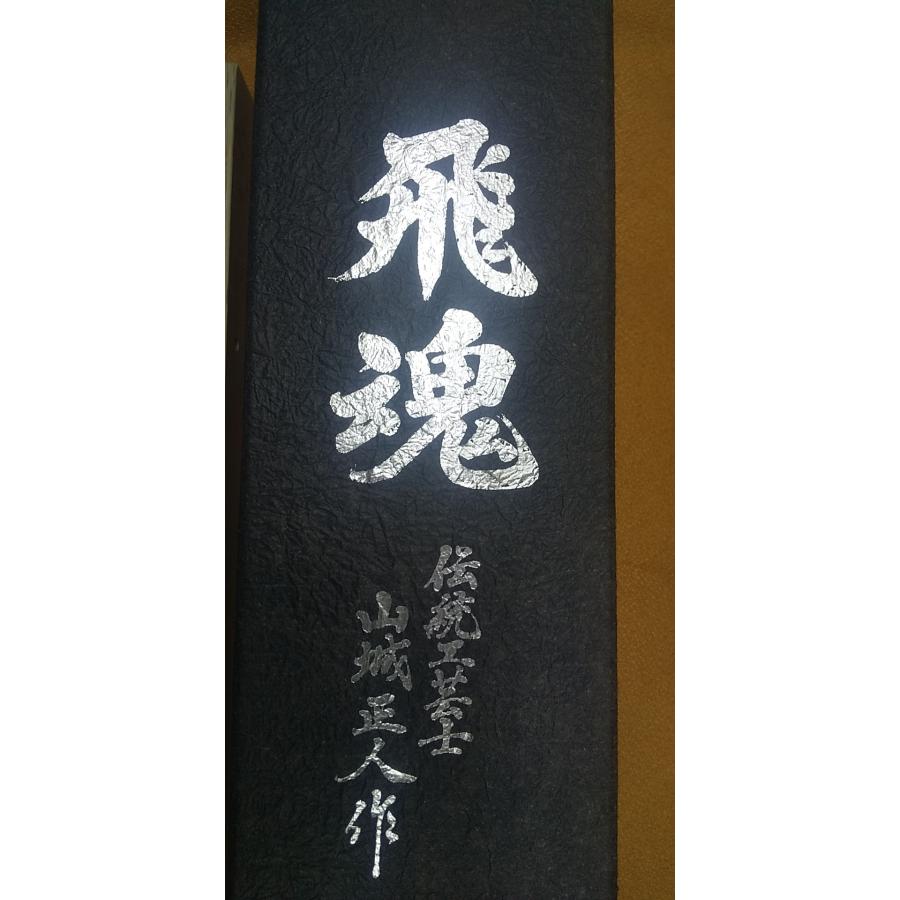 飛魂
伝統工芸士
山城正人作